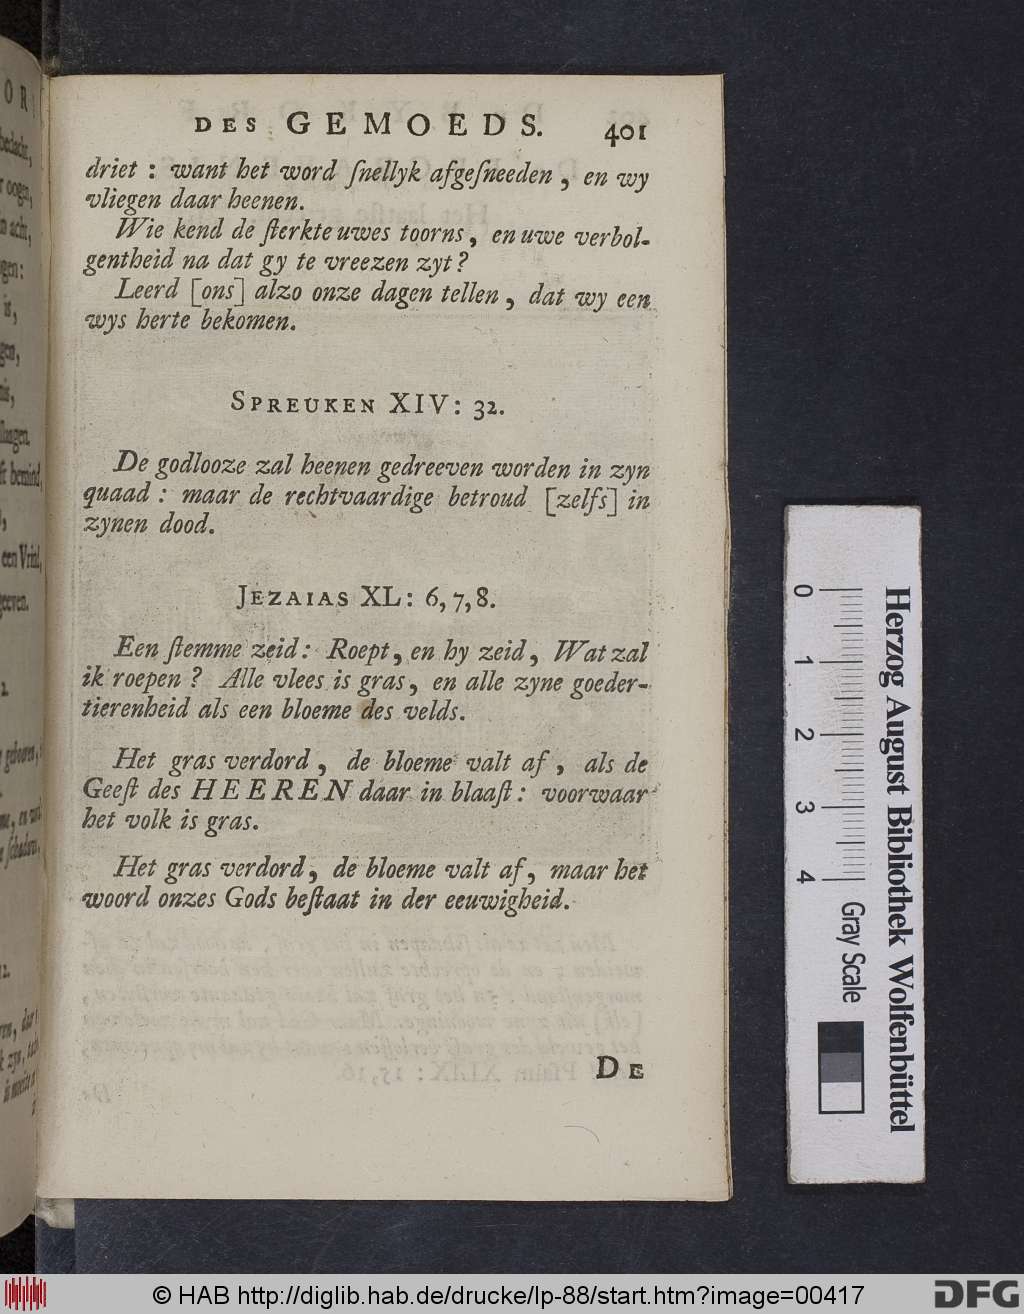 DES GEMOEDS. 401
driet : want het word ſnellyk afgeſneeden , en wy
vliegen daar heenen.
Wie kend de ſterkte uwes toorns , en uwe verbol-
gentheid na dat gy te vreezen zyt ?
Leerd [ons] alzo onze dagen tellen , dat wy een
wys herte bekomen.
SPREUKEN XIV: 32.
De godlooze zal heenen gedreeven worden in zyn
quaad : maar de rechtvaardige betroud [zelfs] in
zynen dood.
JEZAIAS XL: 6, 7, 8.
Een ſtemme zeid : Roept, en hy zeid , Wat zal
ik roepen ? Alle vlees is gras, en alle zyne goeder-
tierenheid als een bloeme des velds.
Het gras verdord , de bloeme valt af , als de
Geeſt des HEEREN daar in blaaſt : voorwaar
het volk is gras.
Het gras verdord, de bloeme valt af, maar het
woord onzes Gods beſtaat in der eeuwigheid.
DE
0 1 2 3 4 Gray Scale
Herzog August Bibliothek Wolfenbüttel
© HAB http://diglib.hab.de/drucke/lp-88/start.htm?image=00417
DFG